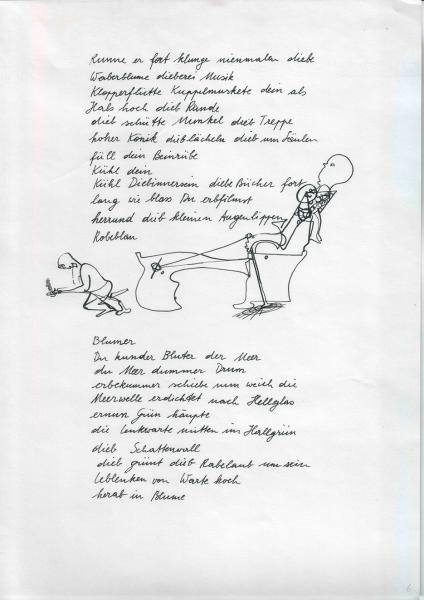 Runne er fort klunge nienmalen diebe
Waberblume dieberei Musik
Klapperflütte Kuppelmuskete dein als
Hals hoch dieb Runde
dieb schütte Munkel dieb Treppe
hoher Konik dieb lächeln dieb um Säulen
füll dein Beinrübe
Kühl dein
Kühl Diebinnersein diebe Bücher fort
lang wie blass Du erbfilmst
herrund dieb kleinen Augenlippen
Robeblau
Blumer
Du hunder Bluter der Meer
du Meer dummer Drum
erbekummer schiebe um weich die
Meerwelle erdichtet nach Hellglas
ernun Grün häupte
die Lenkwarte mitten im Hallgrün
dieb Schattenwall
dieb grünt dieb Rabelaub um sein
leblenken von Warte hoch
herab in Blume
6